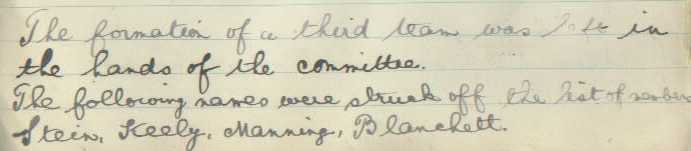 The formation of a third team was left in
the hands of the committee.
The following names were struck off the list of members
Stein, Keely, Manning, Blanchett.